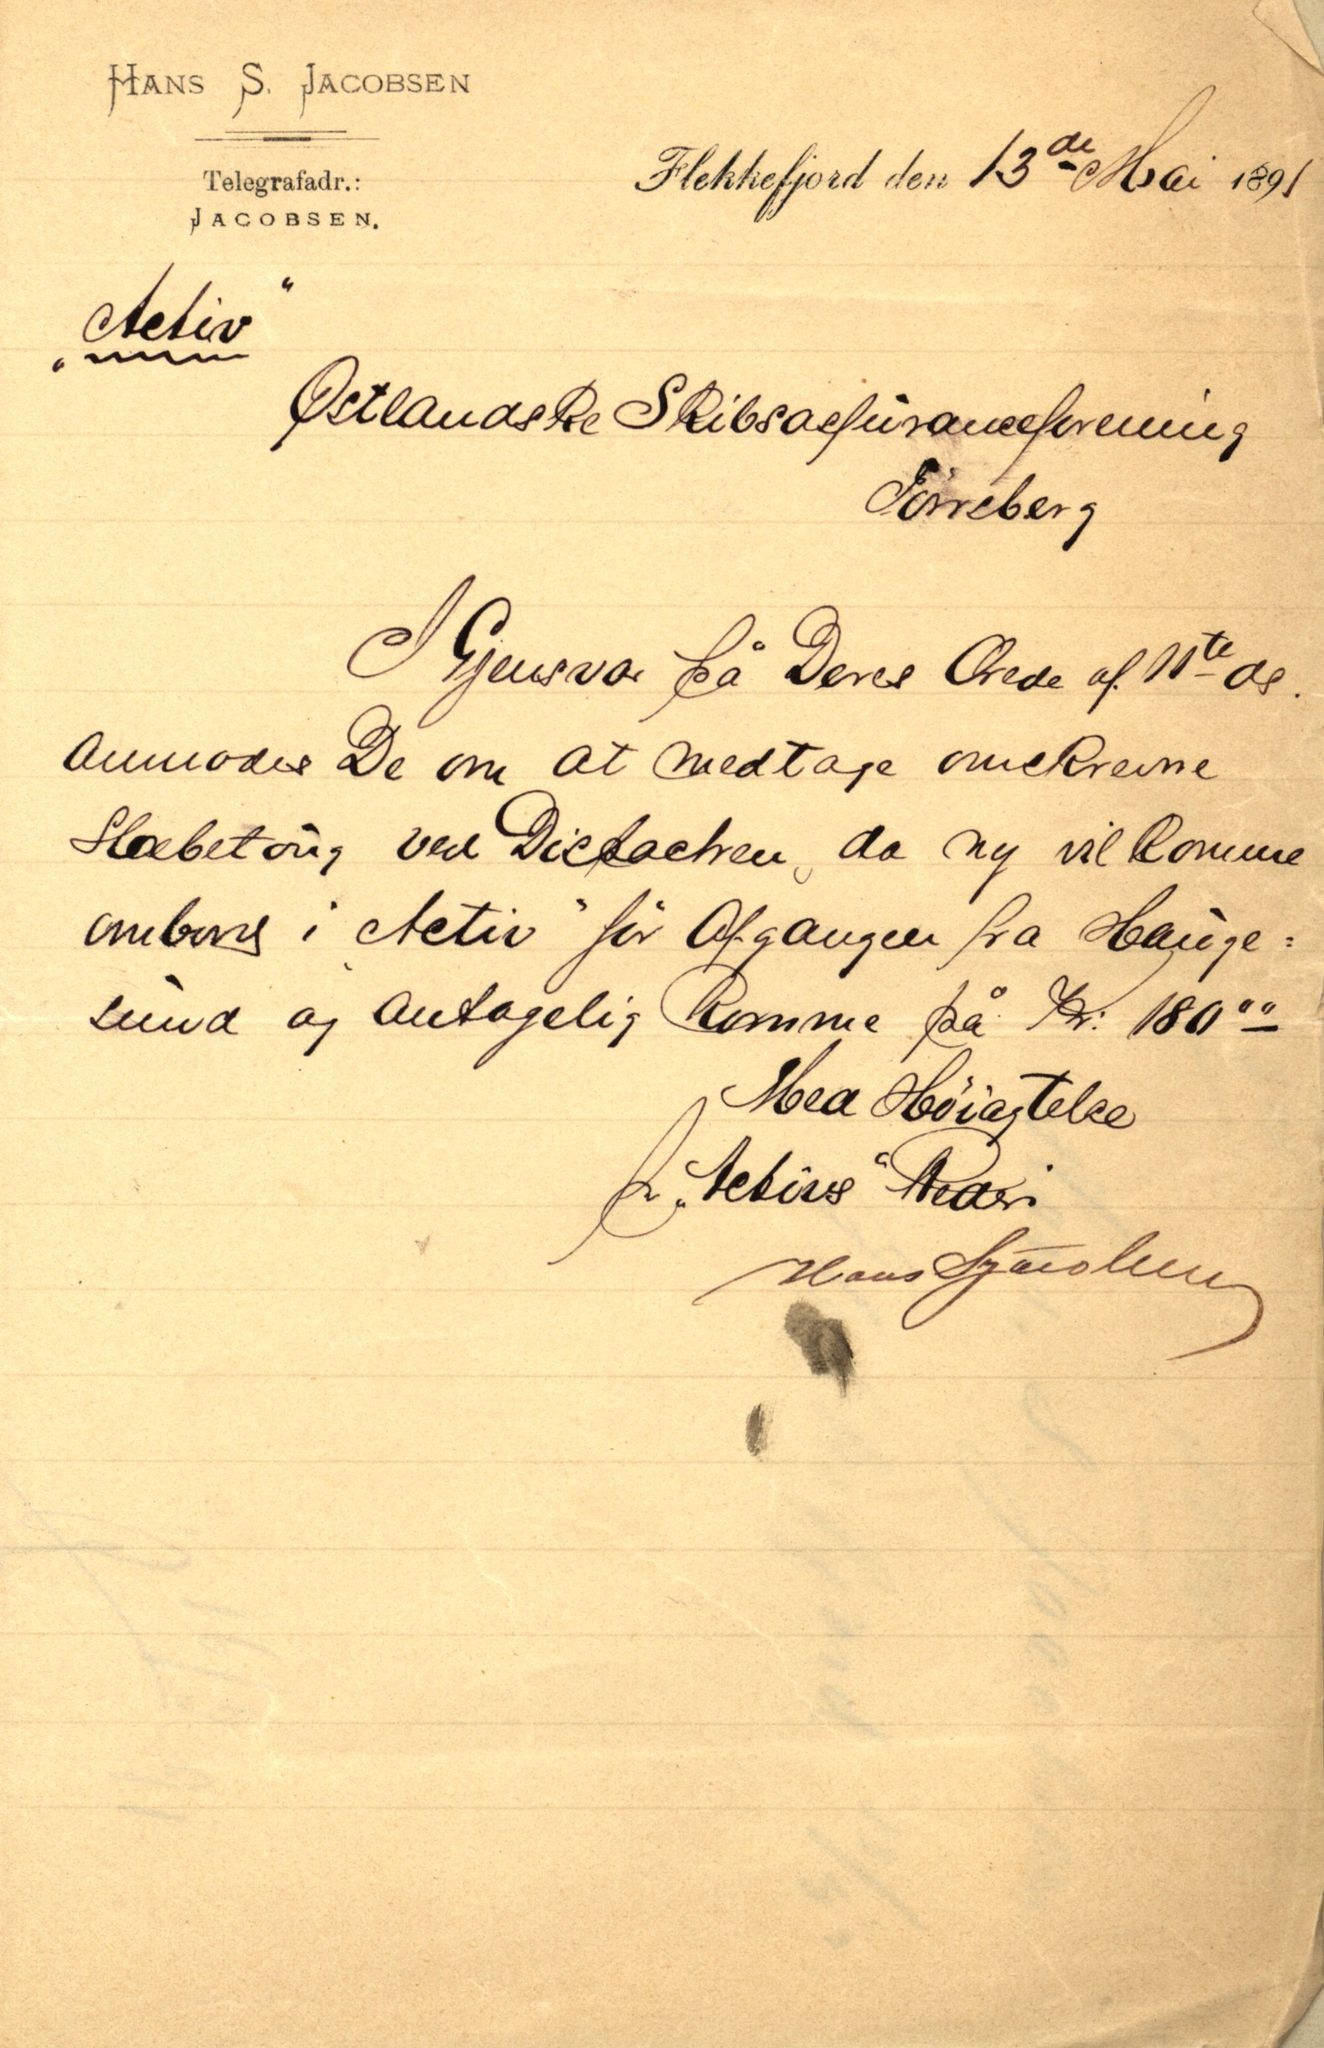 HANS S. JACOBSEN
Telegrafadr.:
JACOBSEN.
Flekkefjord den 13de Mai 1891
„Activ“
Østlandske Skibsassuranceforening
Tönsberg
I Gjensvar på Deres Ærede af 11te ds.
anmodes De om at medtage omskrevne
Slæbetoug ved Dispachen, da ny vil komme
ombord i „Activ“ før Afgangen fra Hauge=
sund og antagelig komme på Kr. 180""
Med Höiagtelse
p. „Activs“ Rederi
Hans S Jacobsen